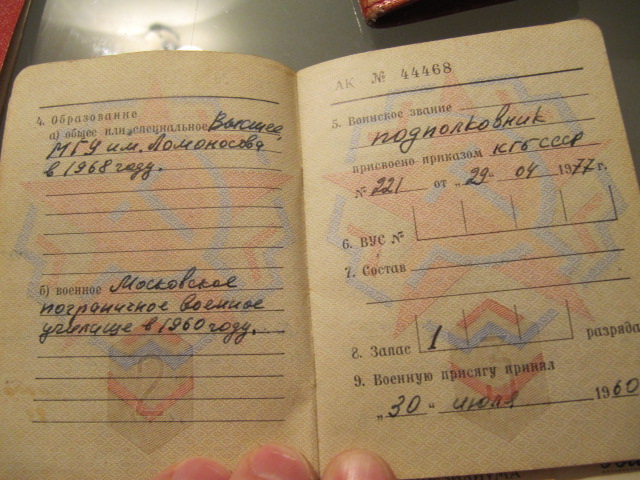 4. Образование
а) общее или специальное Высшее,
МГУ им. Ломоносова
в 1968 году.
б) военное Московское
пограничное военное
училище в 1960 году.
2
АК № 44468
5. Воинское звание
подполковник
присвоено приказом КГБ СССР
№ 221 от „29“ 04 1977 г.
6. ВУС №
7. Состав
8. Запас 1 разряда
9. Военную присягу принял
„30“ июля 1960
3